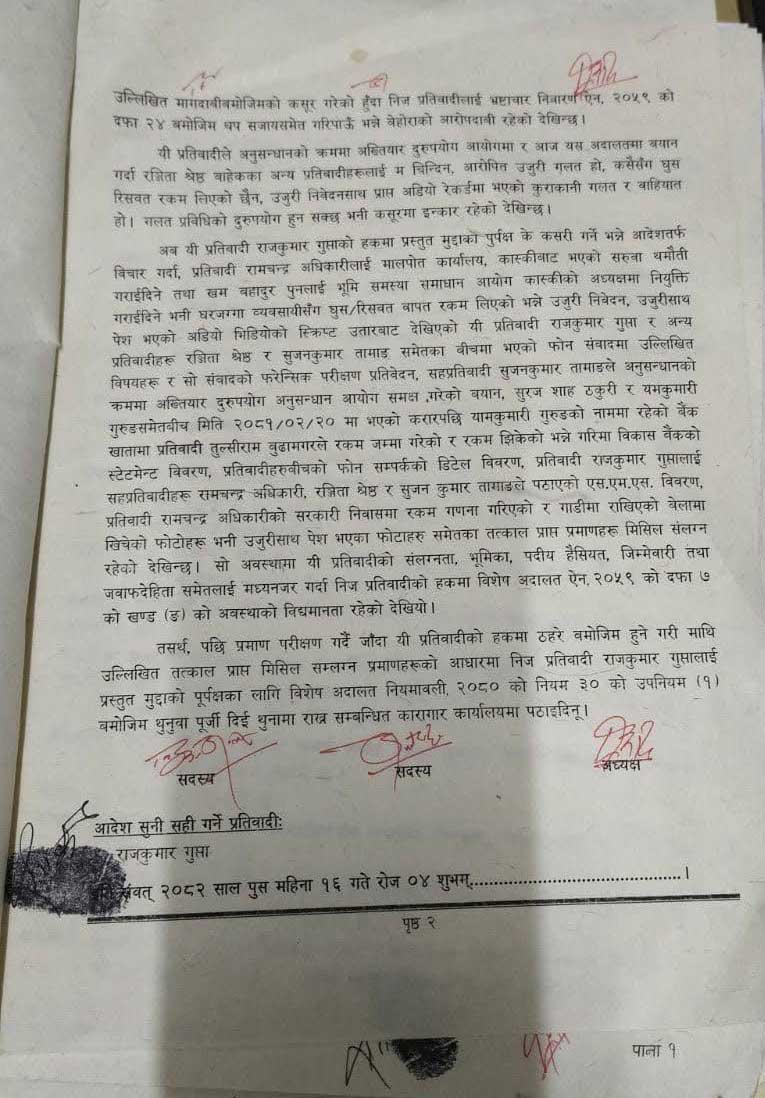 उल्लिखित मागदाबीबमोजिमको कसूर गरेको हुँदा निज प्रतिवादीलाई भ्रष्टाचार निवारण ऐन, २०५९ को
दफा २४ बमोजिम थप सजायसमेत गरिपाऊँ भन्ने बेहोराको आरोपदाबी रहेको देखिन्छ।
यी प्रतिवादीले अनुसन्धानको क्रममा अख्तियार दुरुपयोग आयोगमा र आज यस अदालतमा बयान
गर्दा रञ्जिता श्रेष्ठ बाहेकका अन्य प्रतिवादीहरूलाई म चिन्दिन, आरोपित उजुरी गलत हो, कसैसँग घुस
रिसवत रकम लिएको छैन, उजुरी निवेदनसाथ प्राप्त अडियो रेकर्डमा भएको कुराकानी गलत र वाहियात
हो। गलत प्रविधिको दुरुपयोग हुन सक्छ भनी कसूरमा इन्कार रहेको देखिन्छ।
अब यी प्रतिवादी राजकुमार गुप्ताको हकमा प्रस्तुत मुद्दाको पुर्पक्ष के कसरी गर्ने भन्ने आदेशतर्फ
विचार गर्दा, प्रतिवादी रामचन्द्र अधिकारीलाई मालपोत कार्यालय, कास्कीबाट भएको सरुवा थमौती
गराईदिने तथा खम बहादुर पुनलाई भूमि समस्या समाधान आयोग कास्कीको अध्यक्षमा नियुक्ति
गराईदिने भनी घरजग्गा व्यवसायीसँग घुस/रिसवत बापत रकम लिएको भन्ने उजुरी निवेदन, उजुरीसाथ
पेश भएको अडियो भिडियोको स्क्रिप्ट उतारबाट देखिएको यी प्रतिवादी राजकुमार गुप्ता र अन्य
प्रतिवादीहरू रञ्जिता श्रेष्ठ र सुजनकुमार तामाङ समेतका बीचमा भएको फोन संवादमा उल्लिखित
विषयहरू र सो संवादको फरेन्सिक परीक्षण प्रतिवेदन, सहप्रतिवादी सुजनकुमार तामाङले अनुसन्धानको
क्रममा अख्तियार दुरुपयोग अनुसन्धान आयोग समक्ष गरेको बयान, सुरज शाह ठकुरी र यमकुमारी
गुरुङसमेतबीच मिति २०८१/०२/२० मा भएको करारपछि यामकुमारी गुरुङको नाममा रहेको बैंक
खातामा प्रतिवादी तुल्सीराम बुढामगरले रकम जम्मा गरेको र रकम झिकेको भन्ने गरिमा विकास बैंकको
स्टेटमेन्ट विवरण, प्रतिवादीहरुबीचको फोन सम्पर्कको डिटेल विवरण, प्रतिवादी राजकुमार गुप्तालाई
सहप्रतिवादीहरू रामचन्द्र अधिकारी, रञ्जिता श्रेष्ठ र सुजन कुमार तामाङले पठाएको एस.एम.एस. विवरण,
प्रतिवादी रामचन्द्र अधिकारीको सरकारी निवासमा रकम गणना गरिएको र गाडीमा राखिएको बेलामा
खिचेको फोटोहरू भनी उजुरीसाथ पेश भएका फोटाहरु समेतका तत्काल प्राप्त प्रमाणहरू मिसिल संलग्न
रहेको देखिन्छ। सो अवस्थामा यी प्रतिवादीको संलग्नता, भूमिका, पदीय हैसियत, जिम्मेवारी तथा
जवाफदेहिता समेतलाई मध्यनजर गर्दा निज प्रतिवादीको हकमा विशेष अदालत ऐन, २०५९ को दफा ७
को खण्ड (ङ) को अवस्थाको विद्यमानता रहेको देखियो।
तसर्थ, पछि प्रमाण परीक्षण गर्दै जाँदा यी प्रतिवादीको हकमा ठहरे बमोजिम हुने गरी माथि
उल्लिखित तत्काल प्राप्त मिसिल सम्लग्न प्रमाणहरूको आधारमा निज प्रतिवादी राजकुमार गुप्तालाई
प्रस्तुत मुद्दाको पूर्पक्षका लागि विशेष अदालत नियमावली, २०८० को नियम ३० को उपनियम (१)
बमोजिम थुनुवा पूर्जी दिई थुनामा राख्न सम्बन्धित कारागार कार्यालयमा पठाइदिनू।
सदस्य सदस्य अध्यक्ष
आदेश सुनी सही गर्ने प्रतिवादी:
राजकुमार गुप्ता
संवत् २०८२ साल पुस महिना १६ गते रोज ०४ शुभम्..................................।
पृष्ठ २
पाना १